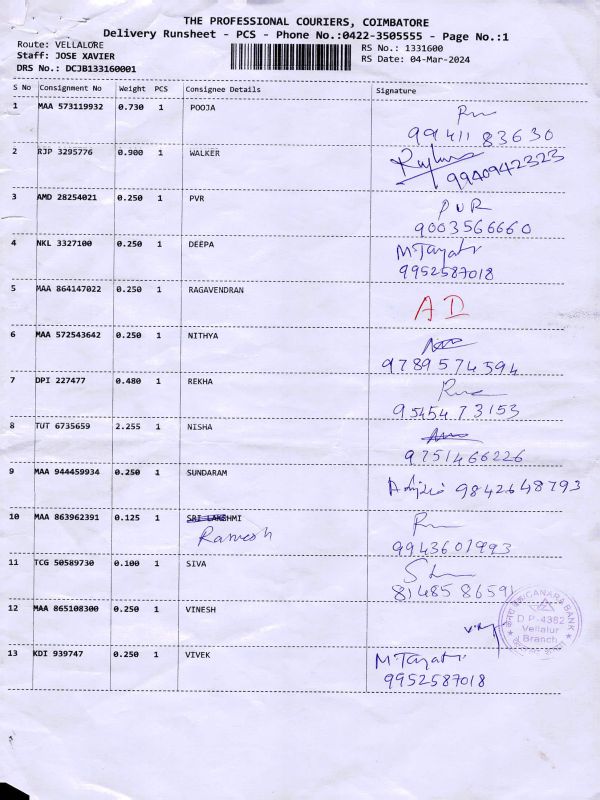 THE PROFESSIONAL COURIERS, COIMBATORE
Delivery Runsheet - PCS - Phone No.:0422-3505555 - Page No.:1
Route: VELLALORE
Staff: JOSE XAVIER
DRS No.: DCJB133160001
RS No.: 1331600
RS Date: 04-Mar-2024
S No Consignment No Weight PCS Consignee Details Signature
1 MAA 573119932 0.730 1 POOJA
99411 83630
2 RJP 3295776 0.900 1 WALKER
9940942323
3 AMD 28254021 0.250 1 PVR PVR
9003566660
4 NKL 3327100 0.250 1 DEEPA M.Tayati
9952587018
5 MAA 864147022 0.250 1 RAGAVENDRAN AD
6 MAA 572543642 0.250 1 NITHYA
9789574594
7 DPI 227477 0.480 1 REKHA
9545473153
8 TUT 6735659 2.255 1 NISHA
9751466226
9 MAA 944459934 0.250 1 SUNDARAM 9842648793
10 MAA 863962391 0.125 1 SRI LAKSHMI
Ramesh
9943601993
11 TCG 50589730 0.100 1 SIVA
81485 86591
12 MAA 865108300 0.250 1 VINESH
CANARA BANK
D P-4382
Vellalur
Branch
13 KDI 939747 0.250 1 VIVEK M Tayati
9952587018